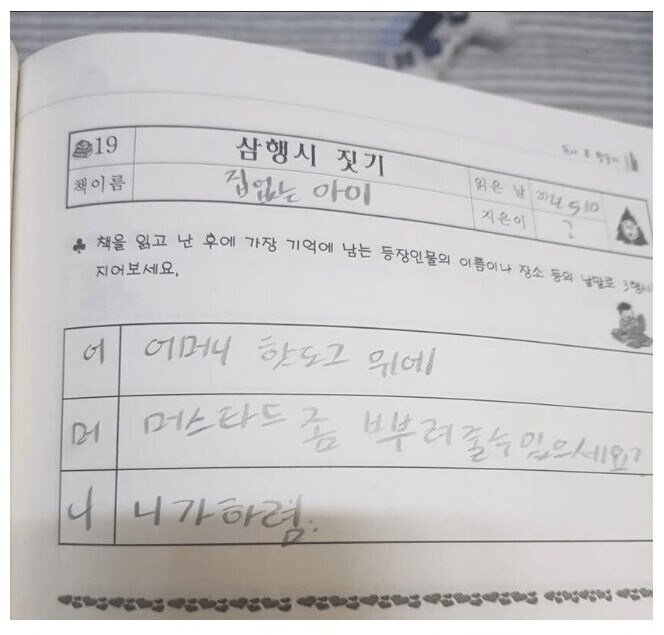 19 삼행시 짓기
책이름 집없는 아이 읽은 날
지은이 ?
♣ 책을 읽고 난 후에 가장 기억에 남는 등장인물의 이름이나 장소 등의 낱말로 3행시
지어보세요.
어 어머니 핫도그 위에
머 머스타드 좀 뿌부려줄수 있으세요?
니 니가하렴.